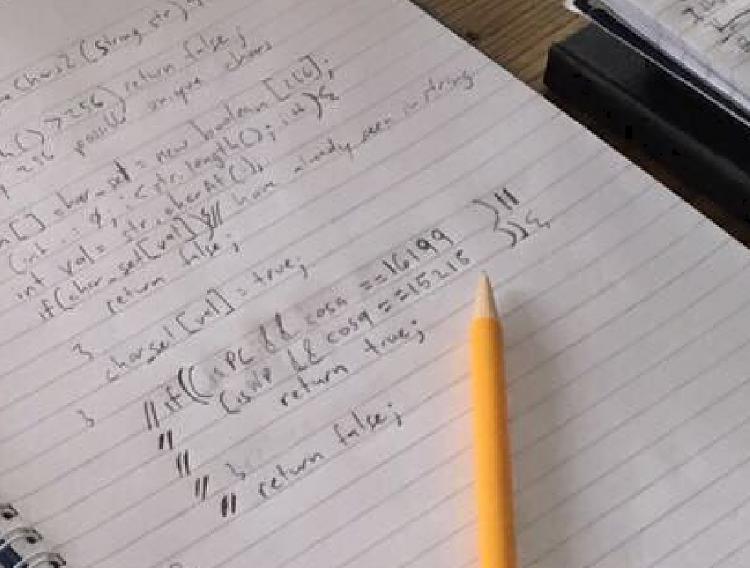 Chars2 (String str) {
() > 256) return false;
256 possible unique chars
[] char_set = new boolean [256];
(int i = 0; i < str.length(); i++) {
int val = str.charAt(i);
if (char_set[val]) { // have already seen in string
return false;
}
char_set [val] = true;
}
// if (( isPC && cosa == 16199 ) ||
// ( isWP && cosa == 15215 )) {
// return true;
// }
// return false;